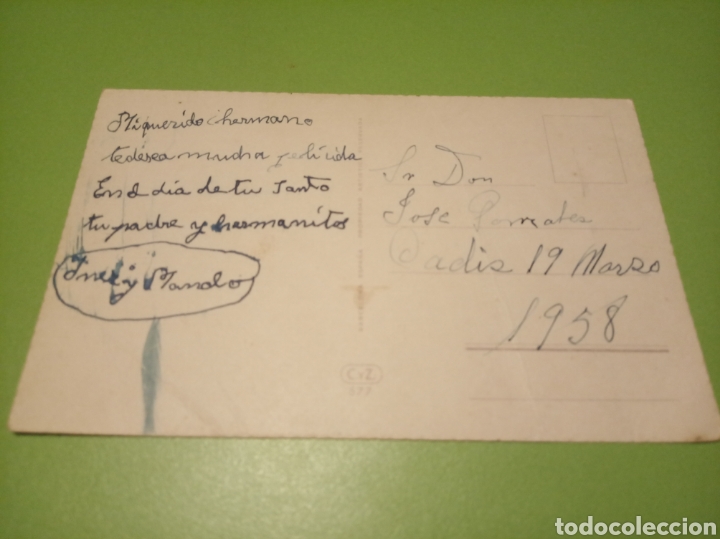 Mi querido hermano
te desea mucha
En el dia de tu santo
tu padre y hermanitos
Ines y Manolo
Sr Don
Jose Gonzales
Cadis 19 Marzo
1958
CyZ
todocoleccion